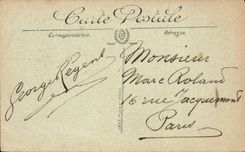 Carte Postale
Correspondance
Adresse
Georges Legend
Monsieur
Marc Roland
16 rue Jacquemont
Paris